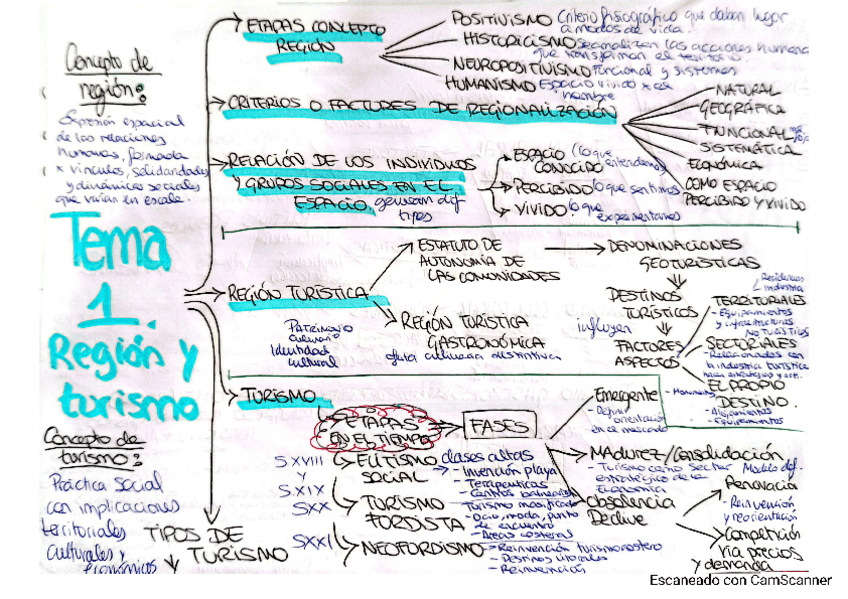 Concepto de
región:
Expresión espacial
de las relaciones
humanas, formada
x vínculos, solidaridades
y dinámicas sociales
que varían en escala.
Tema
1.
Región y
turismo
Concepto de
turismo:
Práctica social
con implicaciones
territoriales
culturales y
económicos
TIPOS DE
TURISMO
ETAPAS CONCEPTO
REGIÓN
POSITIVISMO Criterio fisiográfico que daban lugar
a modos de vida.
HISTORICISMO Se analizan las acciones humana
que transforman el territorio.
NEUROPOSITIVISMO Funcional y sistemas
HUMANISMO Espacio vivido x el
hombre
CRITERIOS O FACTORES DE REGIONALIZACIÓN
NATURAL
GEOGRÁFICA
FUNCIONAL
SISTEMÁTICA
ECONÓMICA
COMO ESPACIO
PERCIBIDO Y VIVIDO
RELACIÓN DE LOS INDIVIDUOS
Y GRUPOS SOCIALES EN EL
ESPACIO, generan dif
tipos
ESPACIO (lo que
CONOCIDO entendemos)
PERCIBIDO lo que sentimos
VIVIDO lo que
experimentamos
REGIÓN TURÍSTICA
ESTATUTO DE
AUTONOMÍA DE
LAS COMUNIDADES
DENOMINACIONES
GEOTURÍSTICAS
DESTINOS
TURÍSTICOS
influyen
FACTORES
ASPECTOS
Residencias
industria
TERRITORIALES
- Equipamientos
y infraestructuras
NO TURISTICOS
SECTORIALES
- Relacionados con
la industria turística
EL PROPIO
DESTINO.
- Alojamientos
- Equipamientos
REGIÓN TURÍSTICA
GASTRONÓMICA
guía culinaria distintiva
Patrimonio
culinario
Identidad
cultural
TURISMO
ETAPAS
EN EL TIEMPO
FASES
Emergente
- Definir
orientación
en el mercado
MADUREZ/Consolidación
- Turismo como sector
estratégico de la
Economía
Modelo dif.
Obsolencia
Declive
Renovación
- Reinvención
y reorientación
Competición
vía precios
y demanda
S.XVIII
y
S.XIX
ELITISMO clases altas
SOCIAL
- Invención playa
- Terapeuticas
- Centros balnearios
SXX
TURISMO
FORDISTA
Turismo masificado
- Ocio, moda, punto
de encuentro
- Areas costeras
SXXI
NEOFORDISMO
- Reinvención turismo costero
- Reinvención
Escaneado con CamScanner